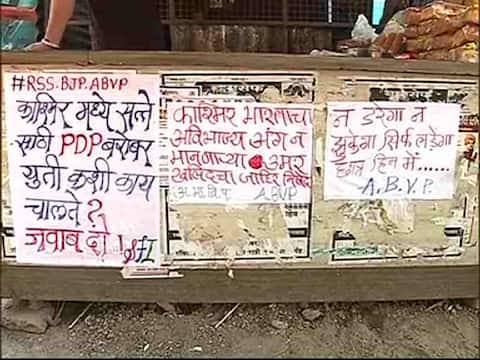 #RSS.BJP.ABVP
काश्मिर मध्ये सत्ते
साठी PDP बरोबर
युती कशी काय
चालते?
जवाब दो!
काश्मिर भारताचा
अविभाज्य अंग न
मानणाऱ्या उमर
खालिदचा जाहिर निषेध
(अ.भा.वि.प. ABVP
न डरेगा न
झुकेगा सिर्फ लडेगा
छात्र हित में......
A.B.V.P.